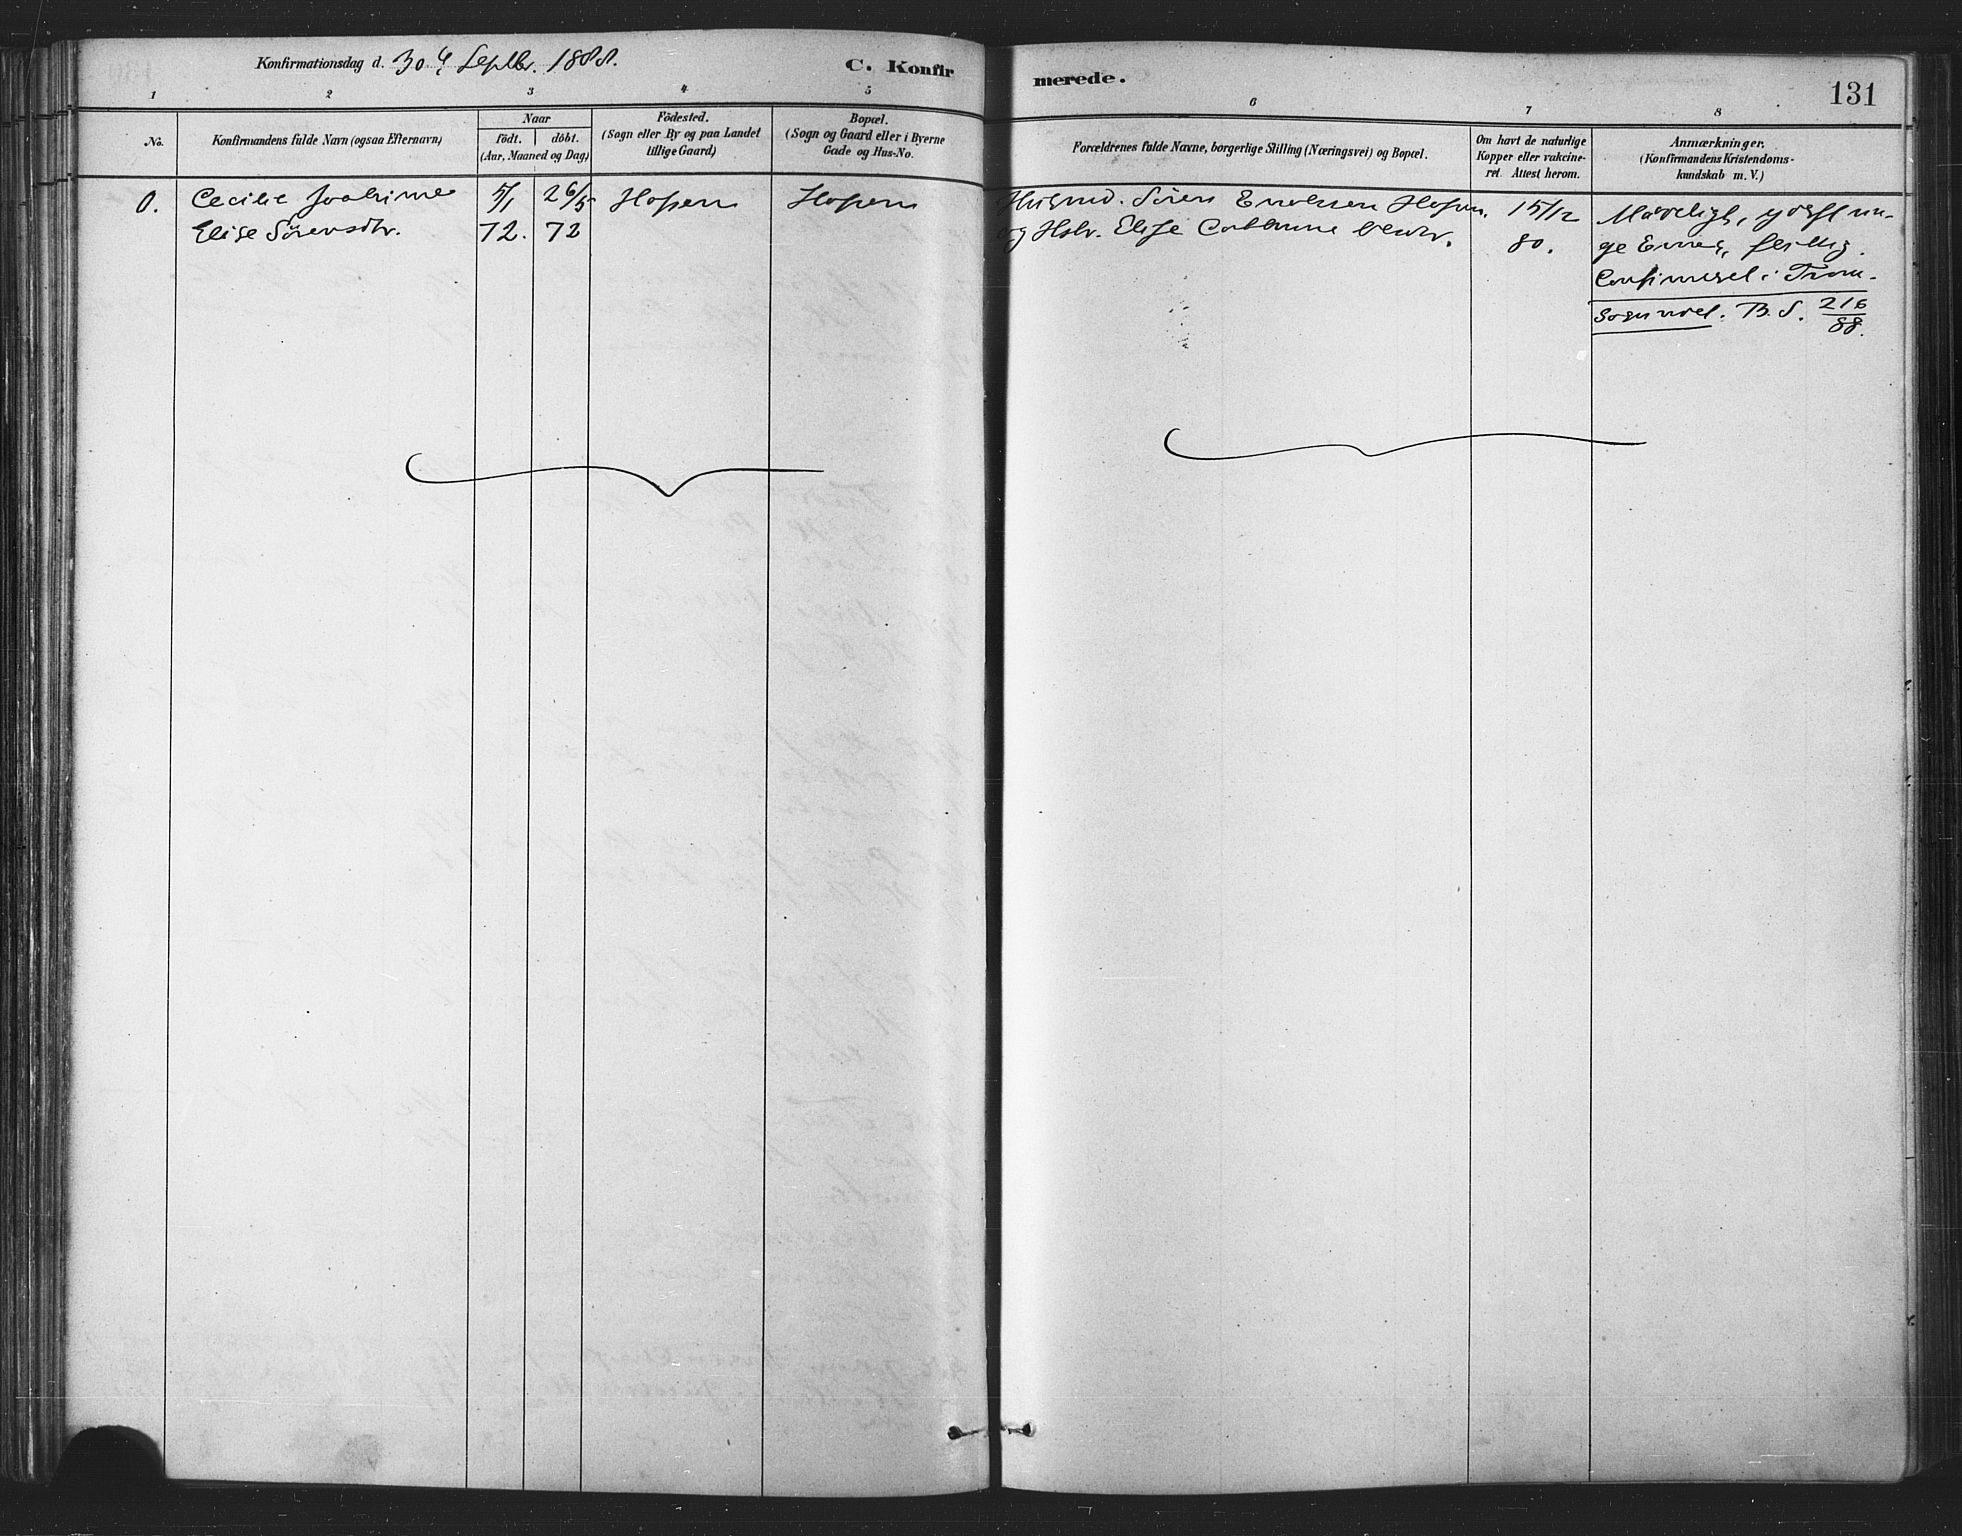 Konfirmationsdag d. 30 Septbr. 1888.
C. Konfirmerede.
131
1 2 3 4 5 6 7 8
No.
Konfirmandens fulde Navn (ogsaa Efternavn)
Naar
födt. döbt.
(Aar, Maaned og Dag)
Födested.
(Sogn eller By og paa Landet
tillige Gaard)
Bopæl.
(Sogn og Gaard eller i Byerne
Gade og Hus-No.
Forældrenes fulde Navne, borgerlige Stilling (Næringsvei) og Bopæl.
Om havt de naturlige
Kopper eller vakcine-
ret. Attest herom.
Anmærkninger.
(Konfirmandens Kristendoms-
kundskab m. V.)
0. Cecilie Joakime 5/1 26/5 Hofsen Hofsen Husmd. Sören Hofsen. 15/12
Elise Sörensdtr. 72. 72 og Hstr. Elise 80.
Maadeligt,
ge Evner, flittig.
Confirmeret i Trom-
sösundet. B. S. 216/88.